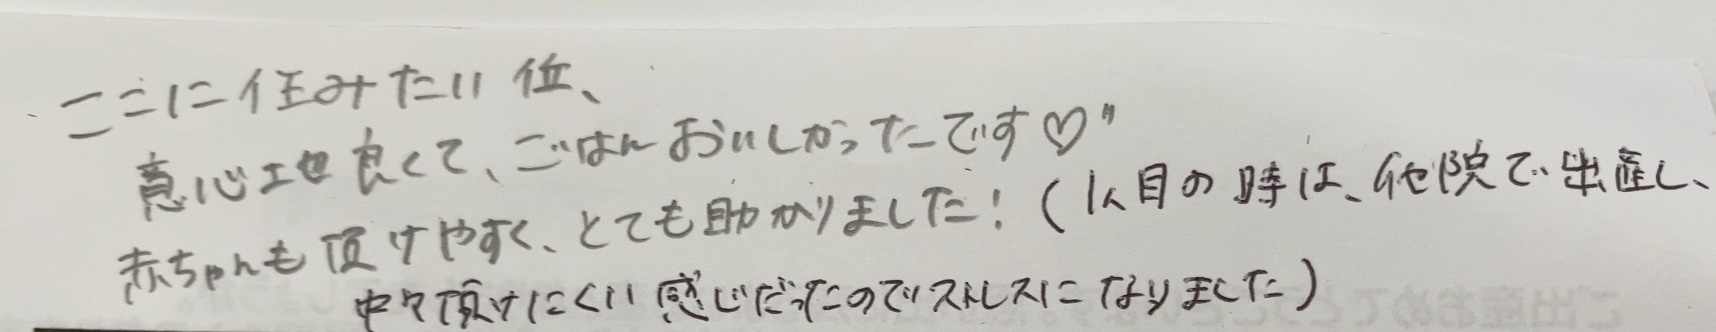 ここに住みたい位、
意心地良くて、ごはんおいしかったです♡"
赤ちゃんも頂けやすく、とても助かりました!(1人目の時は、他院で出産し、
中々頂けにくい感じだったのでストレスになりました)